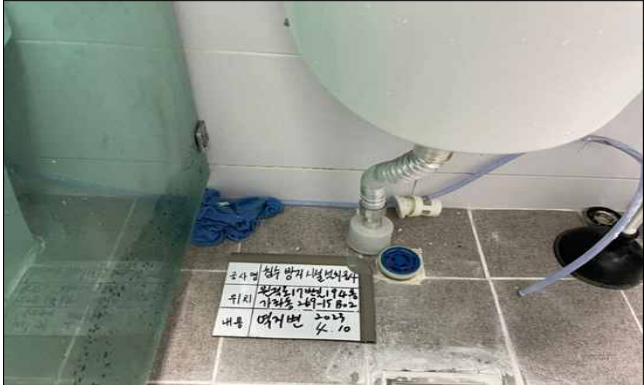 공사명 침수 방지 시설 설치 공사
위치 원적로17번길 19 4층
가좌동 269-15 B02
내용 역지변 2023
4. 10